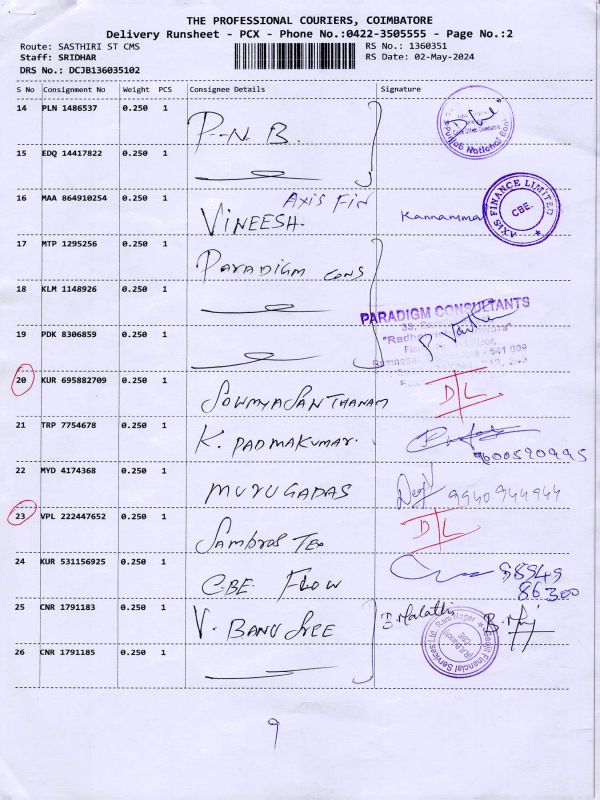 THE PROFESSIONAL COURIERS, COIMBATORE
Delivery Runsheet - PCX - Phone No.:0422-3505555 - Page No.:2
Route: SASTHIRI ST CMS
RS No.: 1360351
Staff: SRIDHAR
RS Date: 02-May-2024
DRS No.: DCJB136035102
S No Consignment No Weight PCS Consignee Details Signature
14 PLN 1486537 0.250 1 P-N B.
15 EDQ 14417822 0.250 1
16 MAA 864910254 0.250 1 VINEESH. AXIS FIN Kannamma AXIS FINANCE LIMITED CBE.
17 MTP 1295256 0.250 1 PARADIGM CONS
18 KLM 1148926 0.250 1
PARADIGM CONSULTANTS
19 PDK 8306859 0.250 1
20 KUR 695882709 0.250 1 SOWMYA SANTHANAM D/L
21 TRP 7754678 0.250 1 K. PADMAKUMAR. 9600590995
22 MYD 4174368 0.250 1 MURUGADAS 9940944944
23 VPL 222447652 0.250 1 Sambros Tex D/L
24 KUR 531156925 0.250 1 CBE FLOW 98949
86300
25 CNR 1791183 0.250 1 V. BANU SREE B. Malathi
26 CNR 1791185 0.250 1
9